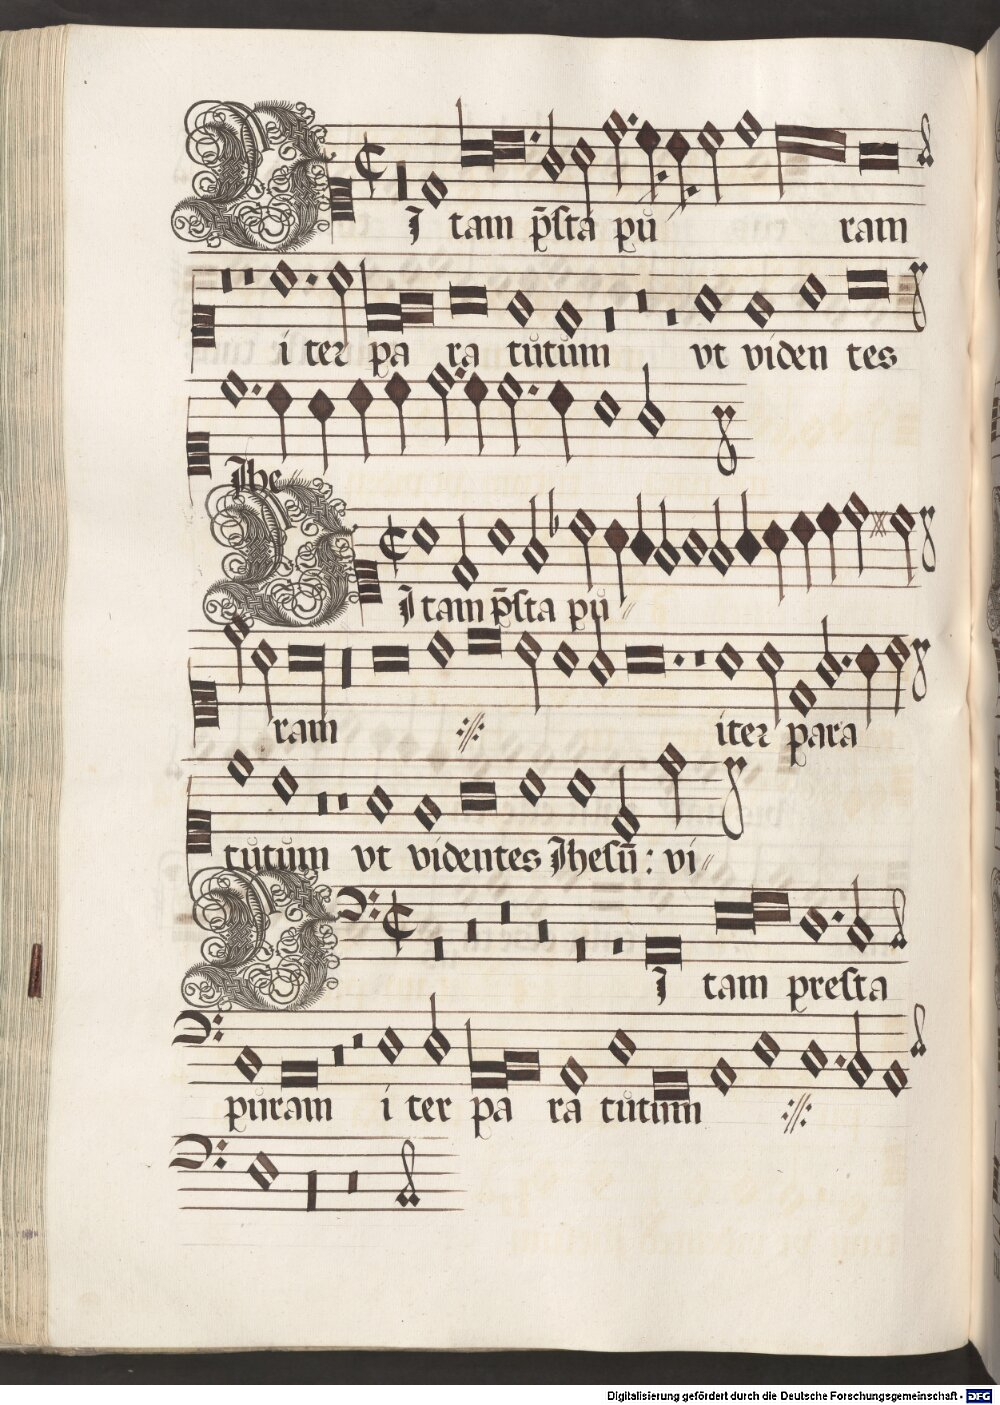 Vitam p̄sta pu ram
i ter pa ra tutum vt viden tes
Jhe〃
Vitam p̄sta pu〃
ram ://: iter para
tutum vt videntes Jhesu̅: vi〃
Vitam presta
puram i ter pa ra tutum ://:
Digitalisierung gefördert durch die Deutsche Forschungsgemeinschaft - DFG